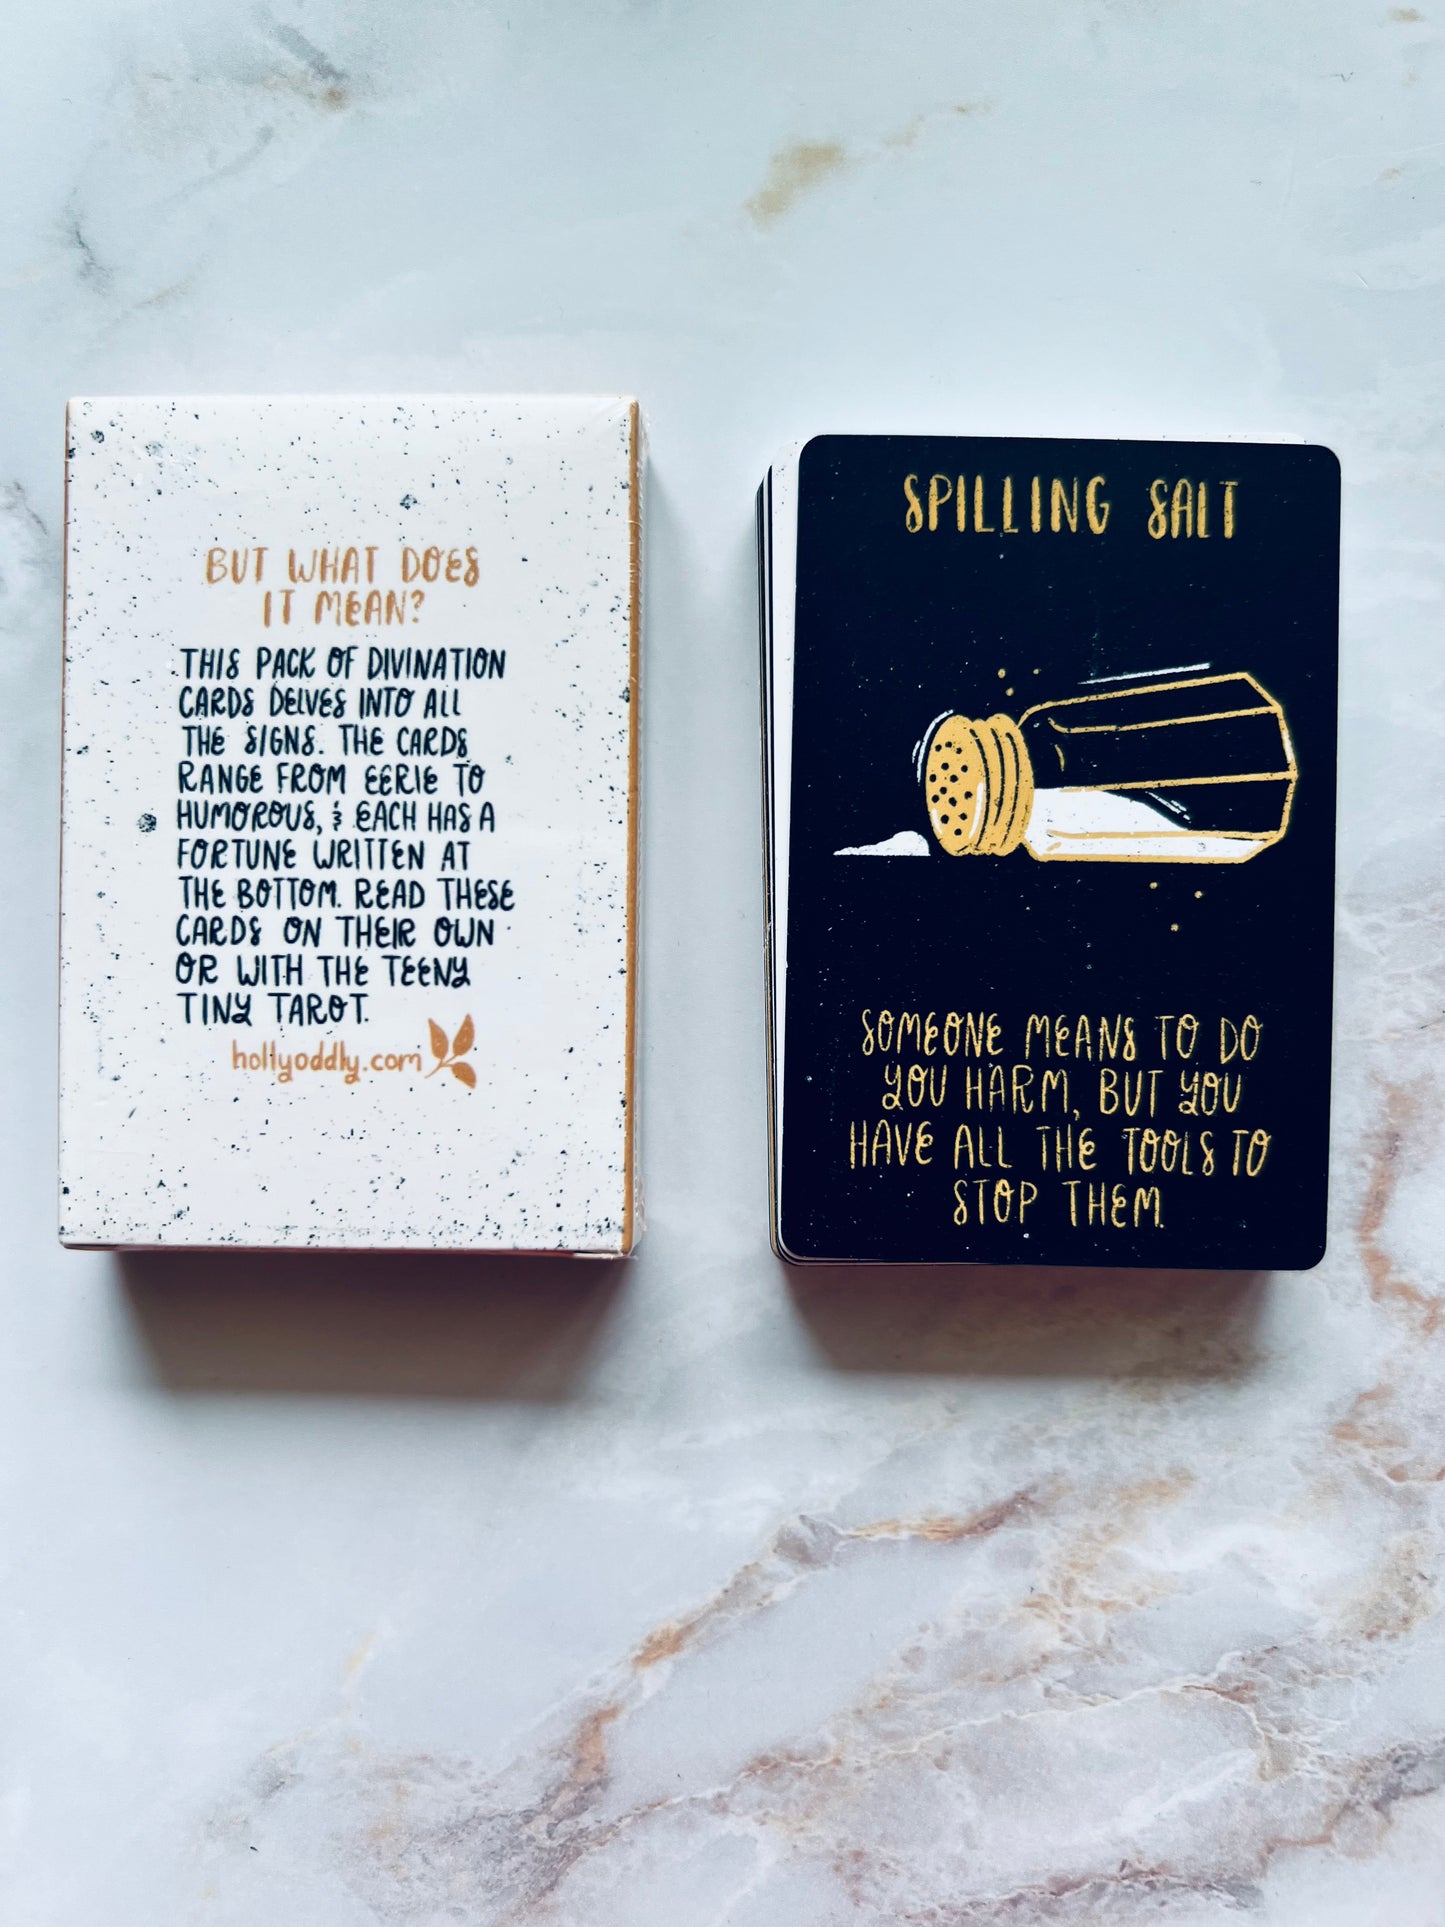 BUT WHAT DOES
IT MEAN?
THIS PACK OF DIVINATION
CARDS DELVES INTO ALL
THE SIGNS. THE CARDS
RANGE FROM EERIE TO
HUMOROUS, & EACH HAS A
FORTUNE WRITTEN AT
THE BOTTOM. READ THESE
CARDS ON THEIR OWN
OR WITH THE TEENY
TINY TAROT.
hollyoddly.com
SPILLING SALT
SOMEONE MEANS TO DO
YOU HARM, BUT YOU
HAVE ALL THE TOOLS TO
STOP THEM.